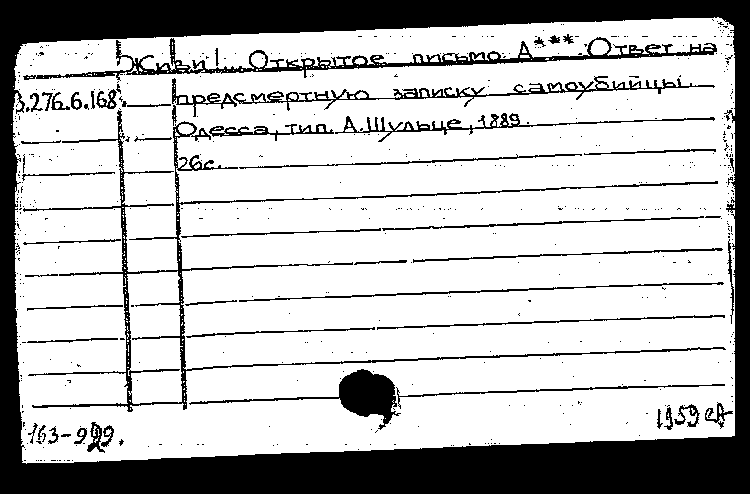 Живи!... Открытое письмо А***. Ответ на
3.276.6.168. предсмертную записку самоубийцы.
Одесса, тип. А. Шульце, 1889.
26с.
163-929.
1959